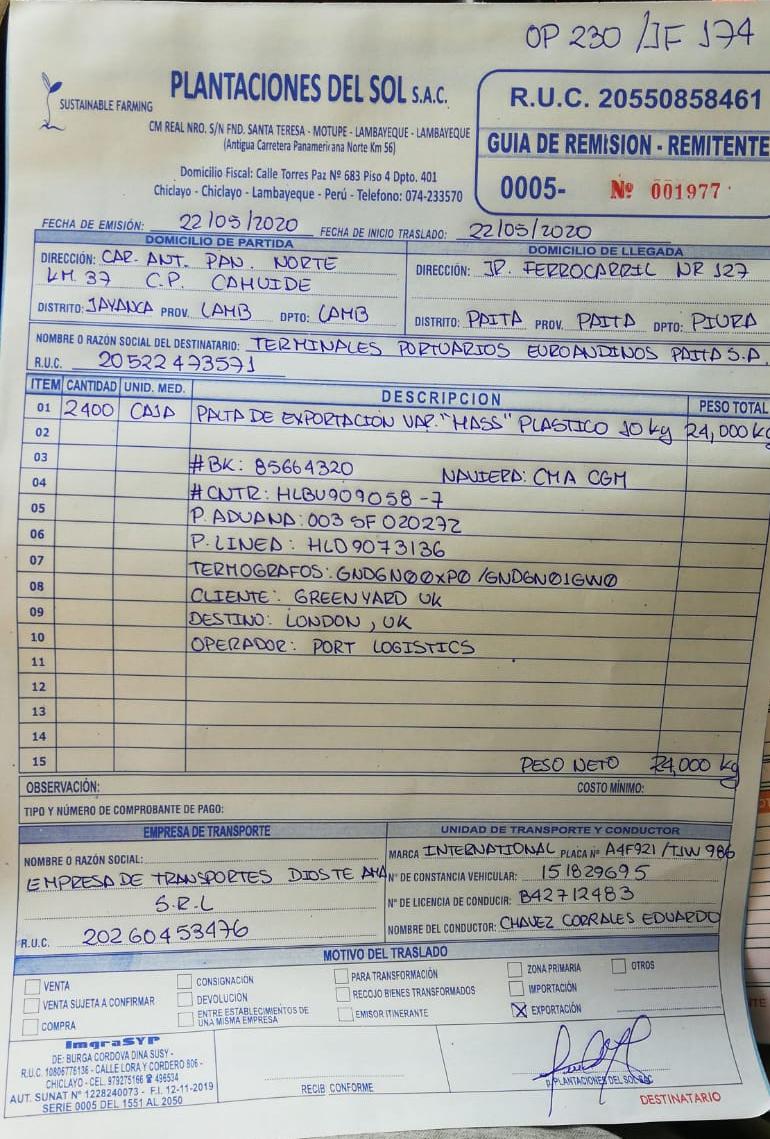 OP 230 / IF 174
SUSTAINABLE FARMING
PLANTACIONES DEL SOL S.A.C.
CM REAL NRO. S/N FND. SANTA TERESA - MOTUPE - LAMBAYEQUE - LAMBAYEQUE
(Antigua Carretera Panamericana Norte Km 56)
Domicilio Fiscal: Calle Torres Paz Nº 683 Piso 4 Dpto. 401
Chiclayo - Chiclayo - Lambayeque - Perú - Telefono: 074-233570
R.U.C. 20550858461
GUIA DE REMISION - REMITENTE
0005- Nº 001977
FECHA DE EMISIÓN: 22/05/2020 FECHA DE INICIO TRASLADO: 22/05/2020
DOMICILIO DE PARTIDA
DIRECCIÓN: CAR. ANT. PAN. NORTE
KM. 37 C.P. CAHUIDE
DISTRITO: JAYANCA PROV. LAMB DPTO: LAMB
DOMICILIO DE LLEGADA
DIRECCIÓN: JR. FERROCARRIL NR 127
DISTRITO: PAITA PROV. PAITA DPTO: PIURA
NOMBRE O RAZÓN SOCIAL DEL DESTINATARIO: TERMINALES PORTUARIOS EUROANDINOS PAITA S.A.
R.U.C. 20522473571
ITEM CANTIDAD UNID. MED. DESCRIPCION PESO TOTAL
01 2400 CAJA PALTA DE EXPORTACIÓN VAR. "HASS" PLASTICO 10 kg 24,000 kg
02
03 #BK: 85664320 NAVIERA: CMA CGM
04 #CNTR: HLBU909058-7
05 P. ADUANA: 003 SF 020272
06 P. LINEA: HLD9073136
07 TERMOGRAFOS: GNDGN00XP0 / GNDGN01GW0
08 CLIENTE: GREENYARD UK
09 DESTINO: LONDON, UK
10 OPERADOR: PORT LOGISTICS
11
12
13
14
15 PESO NETO 24,000 kg
OBSERVACIÓN: COSTO MÍNIMO:
TIPO Y NÚMERO DE COMPROBANTE DE PAGO:
EMPRESA DE TRANSPORTE
NOMBRE O RAZÓN SOCIAL:
EMPRESA DE TRANSPORTES DIOS TE AMA
S.R.L
R.U.C. 20260453476
UNIDAD DE TRANSPORTE Y CONDUCTOR
MARCA INTERNATIONAL PLACA Nº A4F921 / T1W 986
Nº DE CONSTANCIA VEHICULAR: 151829695
Nº DE LICENCIA DE CONDUCIR: B42712483
NOMBRE DEL CONDUCTOR: CHAVEZ CORRALES EDUARDO
MOTIVO DEL TRASLADO
VENTA
VENTA SUJETA A CONFIRMAR
COMPRA
CONSIGNACIÓN
DEVOLUCIÓN
ENTRE ESTABLECIMIENTOS DE
UNA MISMA EMPRESA
PARA TRANSFORMACIÓN
RECOJO BIENES TRANSFORMADOS
EMISOR ITINERANTE
ZONA PRIMARIA
IMPORTACIÓN
X EXPORTACIÓN
OTROS
ImgraSYP
DE: BURGA CORDOVA DINA SUSY -
R.U.C. 10806776136 - CALLE LORA Y CORDERO 806 -
CHICLAYO - CEL. 979275166 ☎ 496534
AUT. SUNAT Nº 1228240073 - F.I. 12-11-2019
SERIE 0005 DEL 1551 AL 2050
RECIB CONFORME
P. PLANTACIONES DEL SOL SAC
DESTINATARIO